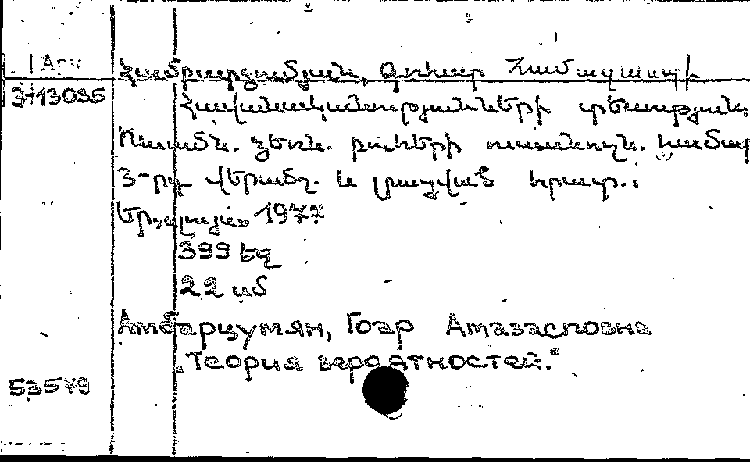 Համբարձումյան, Գոհար Համազասպի
3-13035
Հավանականությունների տեսություն
Ուսումն. ձեռն. բուհերի ուսանողն. համար
3-րդ վերամշ. և լրացված հրատ.:
Երևան 1977
399 եզ
22 սմ
Амбарцумян, Гоар Амазасповна
„Теория вероятностей."
53579